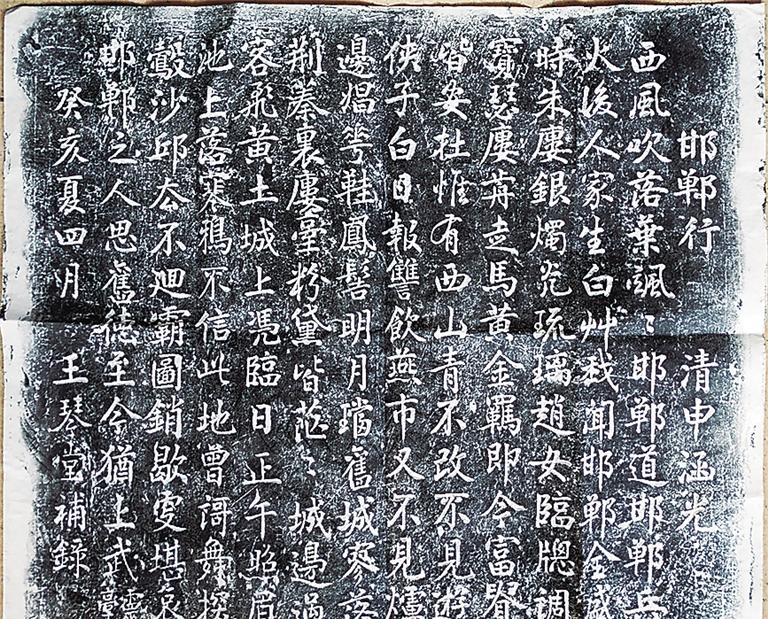 邯鄲行 清申涵光
西風吹落葉颯〻邯鄲道邯鄲兵
火後人家生白艸我聞邯鄲全盛
時朱廔銀燭光琉璃趙女臨牕調
寶瑟廔前走馬黃金羈即今富貴
皆安在惟有西山青不改不見游
俠子白日報讐飲燕市又不見爐
邊娼鞋鳳髻明月璫舊城寥落
荆蓁裏廔臺粉黛皆茫〻城邊過
客飛黃土城上憑臨日正午照眉
池上落寒鴉不信此地曾謌舞探
鷇沙邱去不廻霸圖銷歇叓堪哀
邯鄲之人思舊德至今猶上武靈臺
癸亥夏四月 王琴堂補録